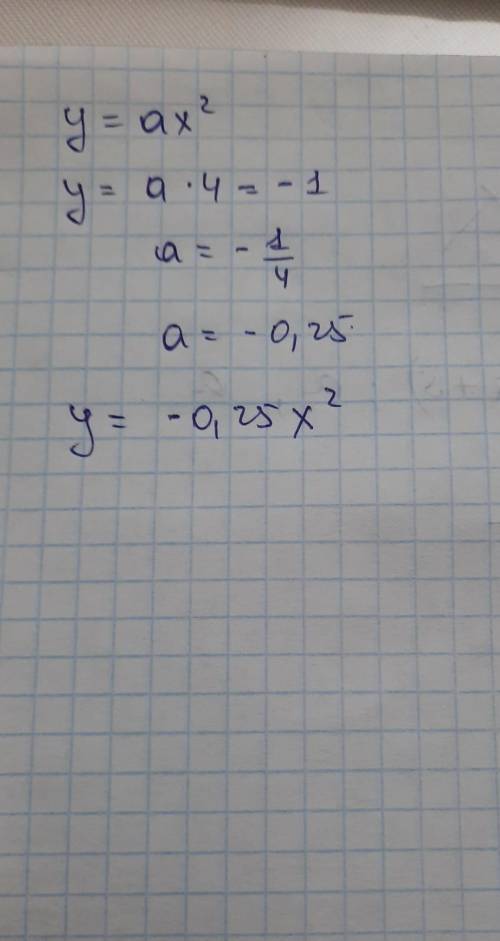 y = ax²
y = a · 4 = - 1
a = - 1/4
a = - 0,25
y = - 0,25 x²